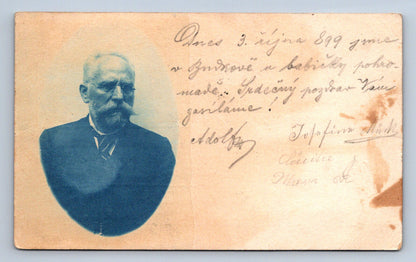 Dnes 3. října 899 jsme
v u babičky pohro-
madě. Srdečný pozdrav Vám
zasíláme!
Adolf
Josefina